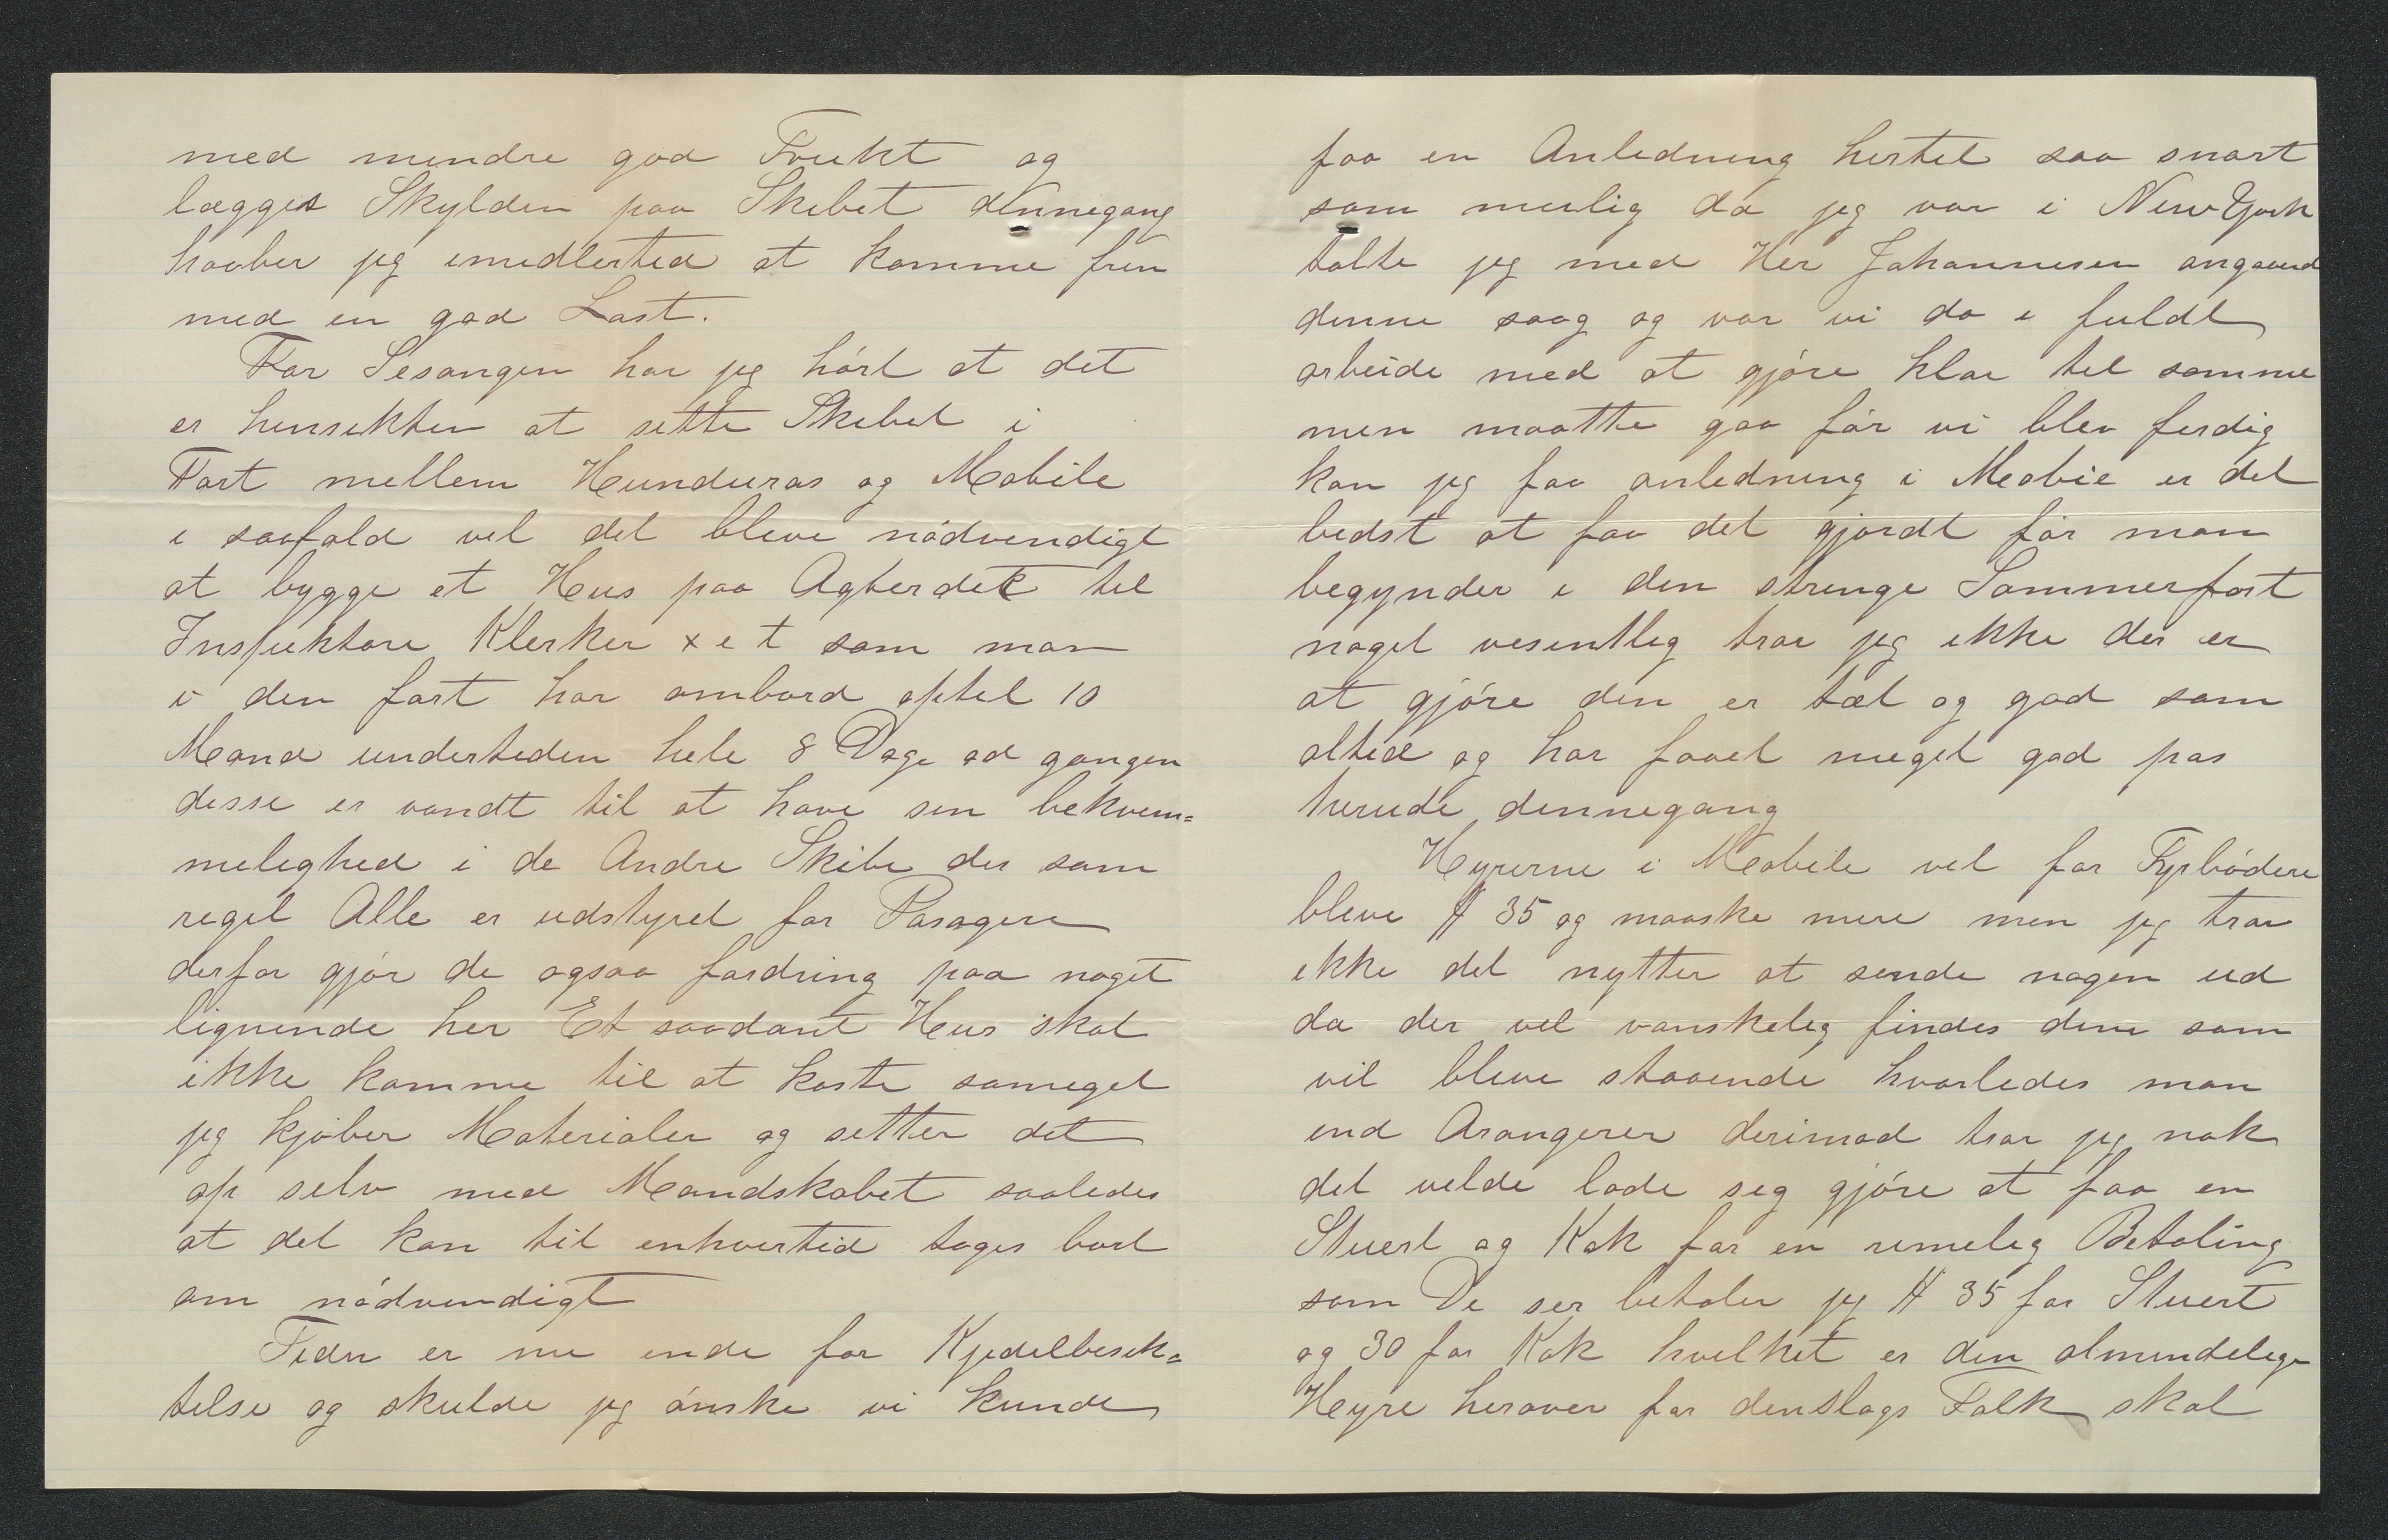 med mindre god Frukt og
lægges Skylden paa Skibet dennegang
haaber jeg imedlertid at komme frem
med en god Last.
For Sesongen har jeg hört at det
er hensikten at sette Skibet i
Fart mellem Hunduras og Mobile
i saafald vil det blive nödvendigt
at bygge et Hus paa Agterdek til
Inspektore Klerker x e t som man
i den fart har ombord optil 10
Mand undertiden hele 8 Dage ad gangen
disse er vandt til at have sin bekvem=
melighed i de Andre Skibe der som
regel Alle er udstyret for Pasagere
derfor gjör de ogsaa fordring paa noget
lignende her Et saadant Hus skal
ikke komme til at koste sameget
jeg kjöber Materialer og setter det
op selv med Mandskabet saaledes
at det kan til enhvertid tages bort
om nödvendigt
Tiden er nu inde for Kjedelbesik=
telse og skulde jeg önske vi kunde
faa en Anledning hertil saa snart
som mulig da jeg var i New York
talte jeg med Her Johannesen angaaend
denne saag og var vi da i fuldt
arbeide med at gjöre klar til samme
men maatte gaa för vi blev ferdig
kan jeg faa anledning i Mobie er det
bedst at faa det gjordt för man
begynder i den strenge Sommerfart
noget vesentlig tror jeg ikke der er
at gjöre den er tæt og god som
altid og har faaet meget god pas
herude dennegang
Hyrerne i Mobile vil for Fyrbödere
blive $ 35 og maaske mere men jeg tror
ikke det nytter at sende nogen ud
da der vel vanskelig findes dem som
vil blive staaende hvorledes man
end Arangerer derimod tror jeg nok
det vilde lade sig gjöre at faa en
Stuert og Kok for en rimelig Betaling
som De ser betaler jeg $ 35 for Stuert
og 30 for Kok hvilket er den almindelige
Hyre herover for denslags Folk skal